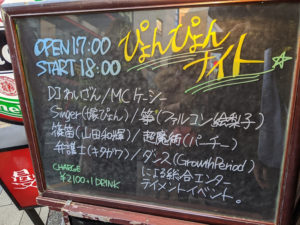 OPEN 17:00
START 18:00
ぴょんぴょん
ナイト☆
DJわんざん/MCケーシー
Singer(嫁ぴょん)/箏(ファルコン絵梨子)
篠笛(山田和輝)/超魔術(パーチー)
弁護士(キタガワ)/ダンス(GrowthPeriod)
による総合エンター
テイメントイベント。
CHARGE
¥2100+1DRINK